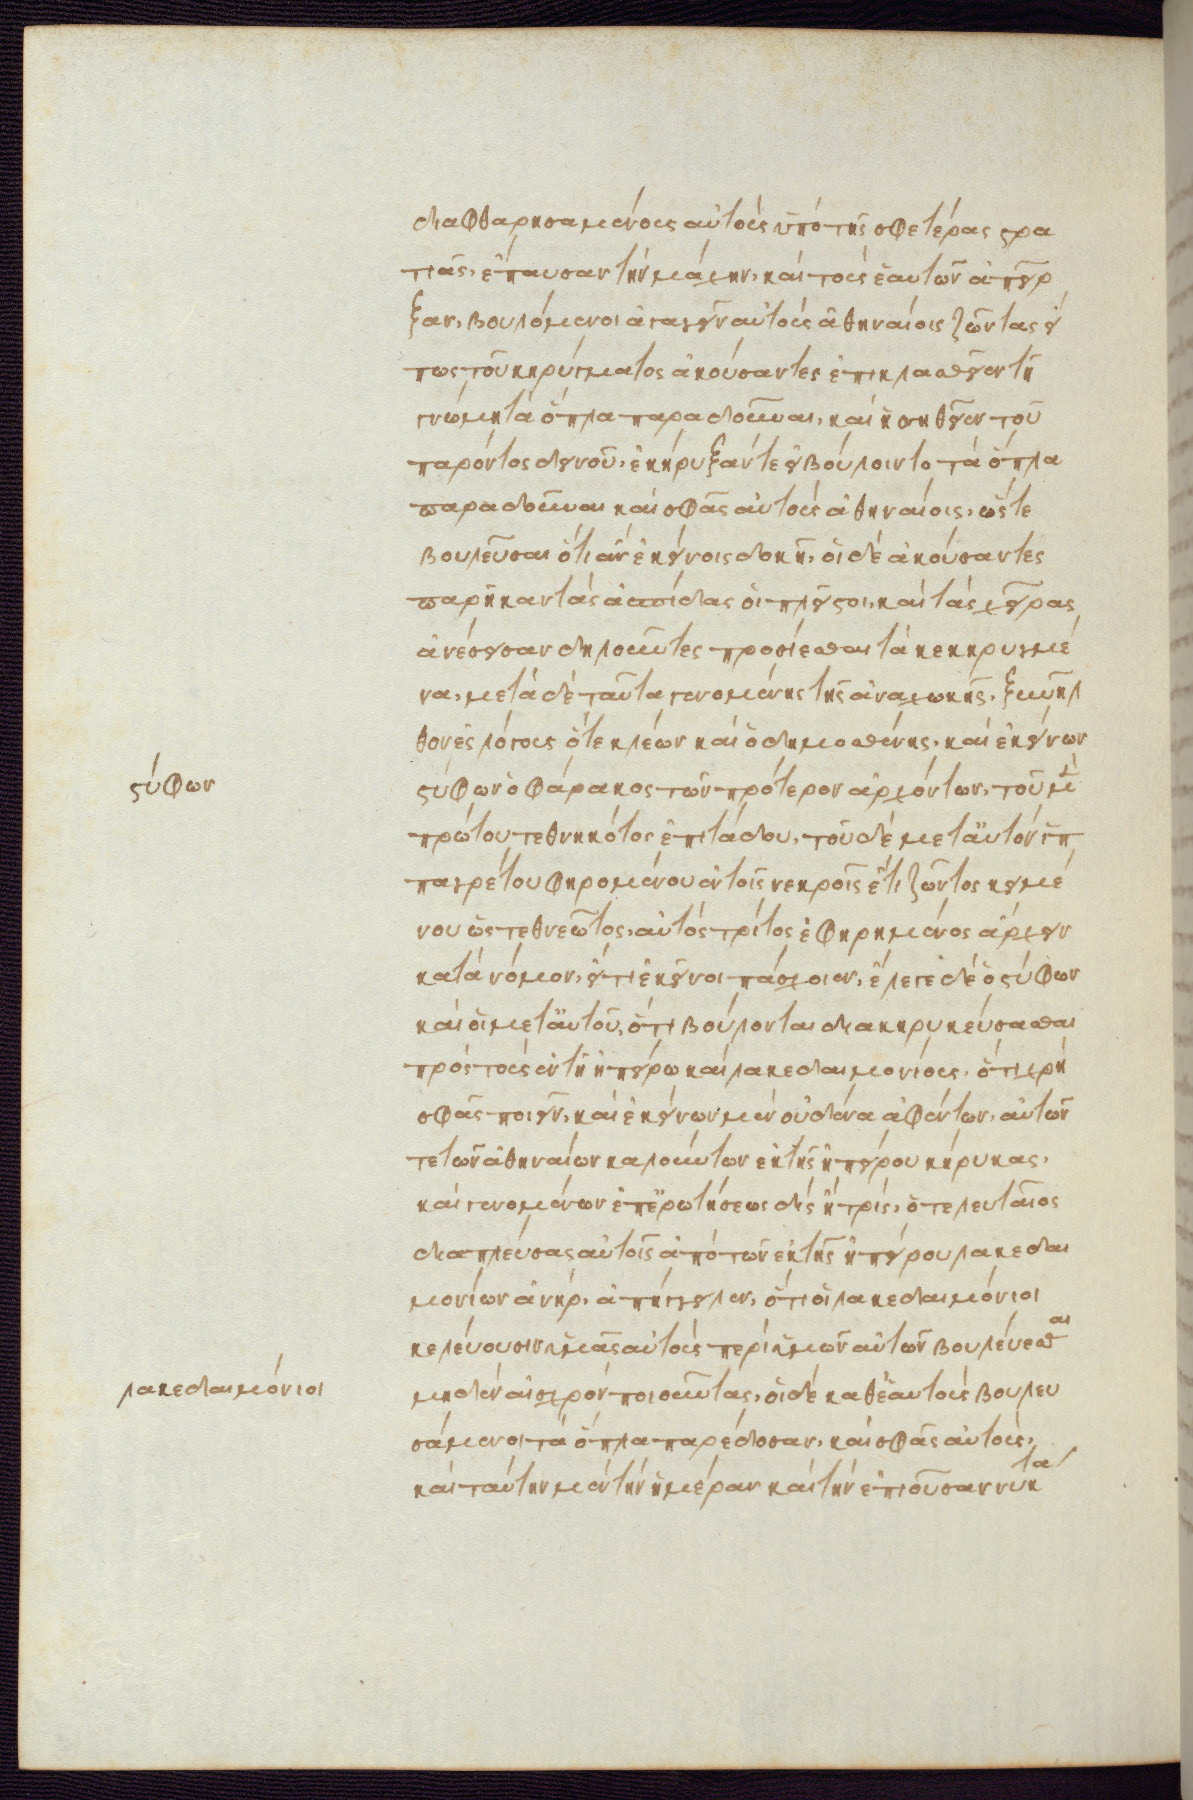 διαφθαρησομένους αὐτοὺς ὑπὸ τῆς σφετέρας στρα
τιᾶς, ἔπαυσαν τὴν μάχην, καὶ τοὺς ἑαυτῶν ἀπεῖρ
ξαν, βουλόμενοι ἀγαγεῖν αὐτοὺς ἀθηναίοις ζῶντας εἴ
πως τοῦ κηρύγματος ἀκούσαντες ἐπικλασθεῖεν τῇ
γνώμῃ τὰ ὅπλα παραδοῦναι, καὶ ἡσσηθεῖεν τοῦ
παρόντος δεινοῦ, ἐκήρυξάν τε εἰ βούλοιντο τὰ ὅπλα
παραδοῦναι καὶ σφᾶς αὐτοὺς ἀθηναίοις, ὥστε
βουλεῦσαι ὅ,τι ἂν ἐκείνοις δοκῇ, οἱ δὲ ἀκούσαντες
παρῆκαν τὰς ἀσπίδας οἱ πλεῖστοι, καὶ τὰς χεῖρας
ἀνέσεισαν δηλοῦντες προσίεσθαι τὰ κεκηρυγμέ
να, μετὰ δὲ ταῦτα γενομένης τῆς ἀνακωχῆς, ξυνῆλ
θον ἐς λόγους ὅ τε κλέων καὶ ὁ δημοσθένης, καὶ ἐκείνων
στύφων
στύφων ὁ φάρακος τῶν πρότερον ἀρχόντων, τοῦ μὲν
πρώτου τεθνηκότος ἐπιτάδου, τοῦ δὲ μετ' αὐτὸν ἱπ
παγρέτου ἐφηρημένου ἐν τοῖς νεκροῖς ἔτι ζῶντος κειμέ
νου ὡς τεθνεῶτος, αὐτὸς τρίτος ἐφηρημένος ἄρχειν
κατὰ νόμον, εἴ τι ἐκεῖνοι πάσχοιεν, ἔλεγε δὲ ὁ στύφων
καὶ οἱ μετ' αὐτοῦ, ὅτι βούλονται διακηρυκεύσασθαι
πρὸς τοὺς ἐν τῇ ἠπείρῳ καὶ λακεδαιμονίους, ὅ,τι χρὴ
σφᾶς ποιεῖν, καὶ ἐκείνων μὲν οὐδένα ἀφέντων, αὐτῶν
τε τῶν ἀθηναίων καλούντων ἐκ τῆς ἠπείρου κήρυκας,
καὶ γενομένων ἐπερωτήσεως δὶς ἢ τρίς, ὁ τελευταῖος
διαπλεύσας αὐτοῖς ἀπὸ τῶν ἐκ τῆς ἠπείρου λακεδαι
μονίων ἀνήρ, ἀπήγγειλεν, ὅτι οἱ λακεδαιμόνιοι
κελεύουσιν ὑμᾶς αὐτοὺς περὶ ὑμῶν αὐτῶν βουλεύεσθαι
λακεδαιμόνιοι
μηδὲν αἰσχρὸν ποιοῦντας, οἱ δὲ καθ' ἑαυτοὺς βουλευ
σάμενοι τὰ ὅπλα παρέδοσαν, καὶ σφᾶς αὐτούς,
καὶ ταύτην μὲν τὴν ἡμέραν καὶ τὴν ἐπιοῦσαν νύκτα